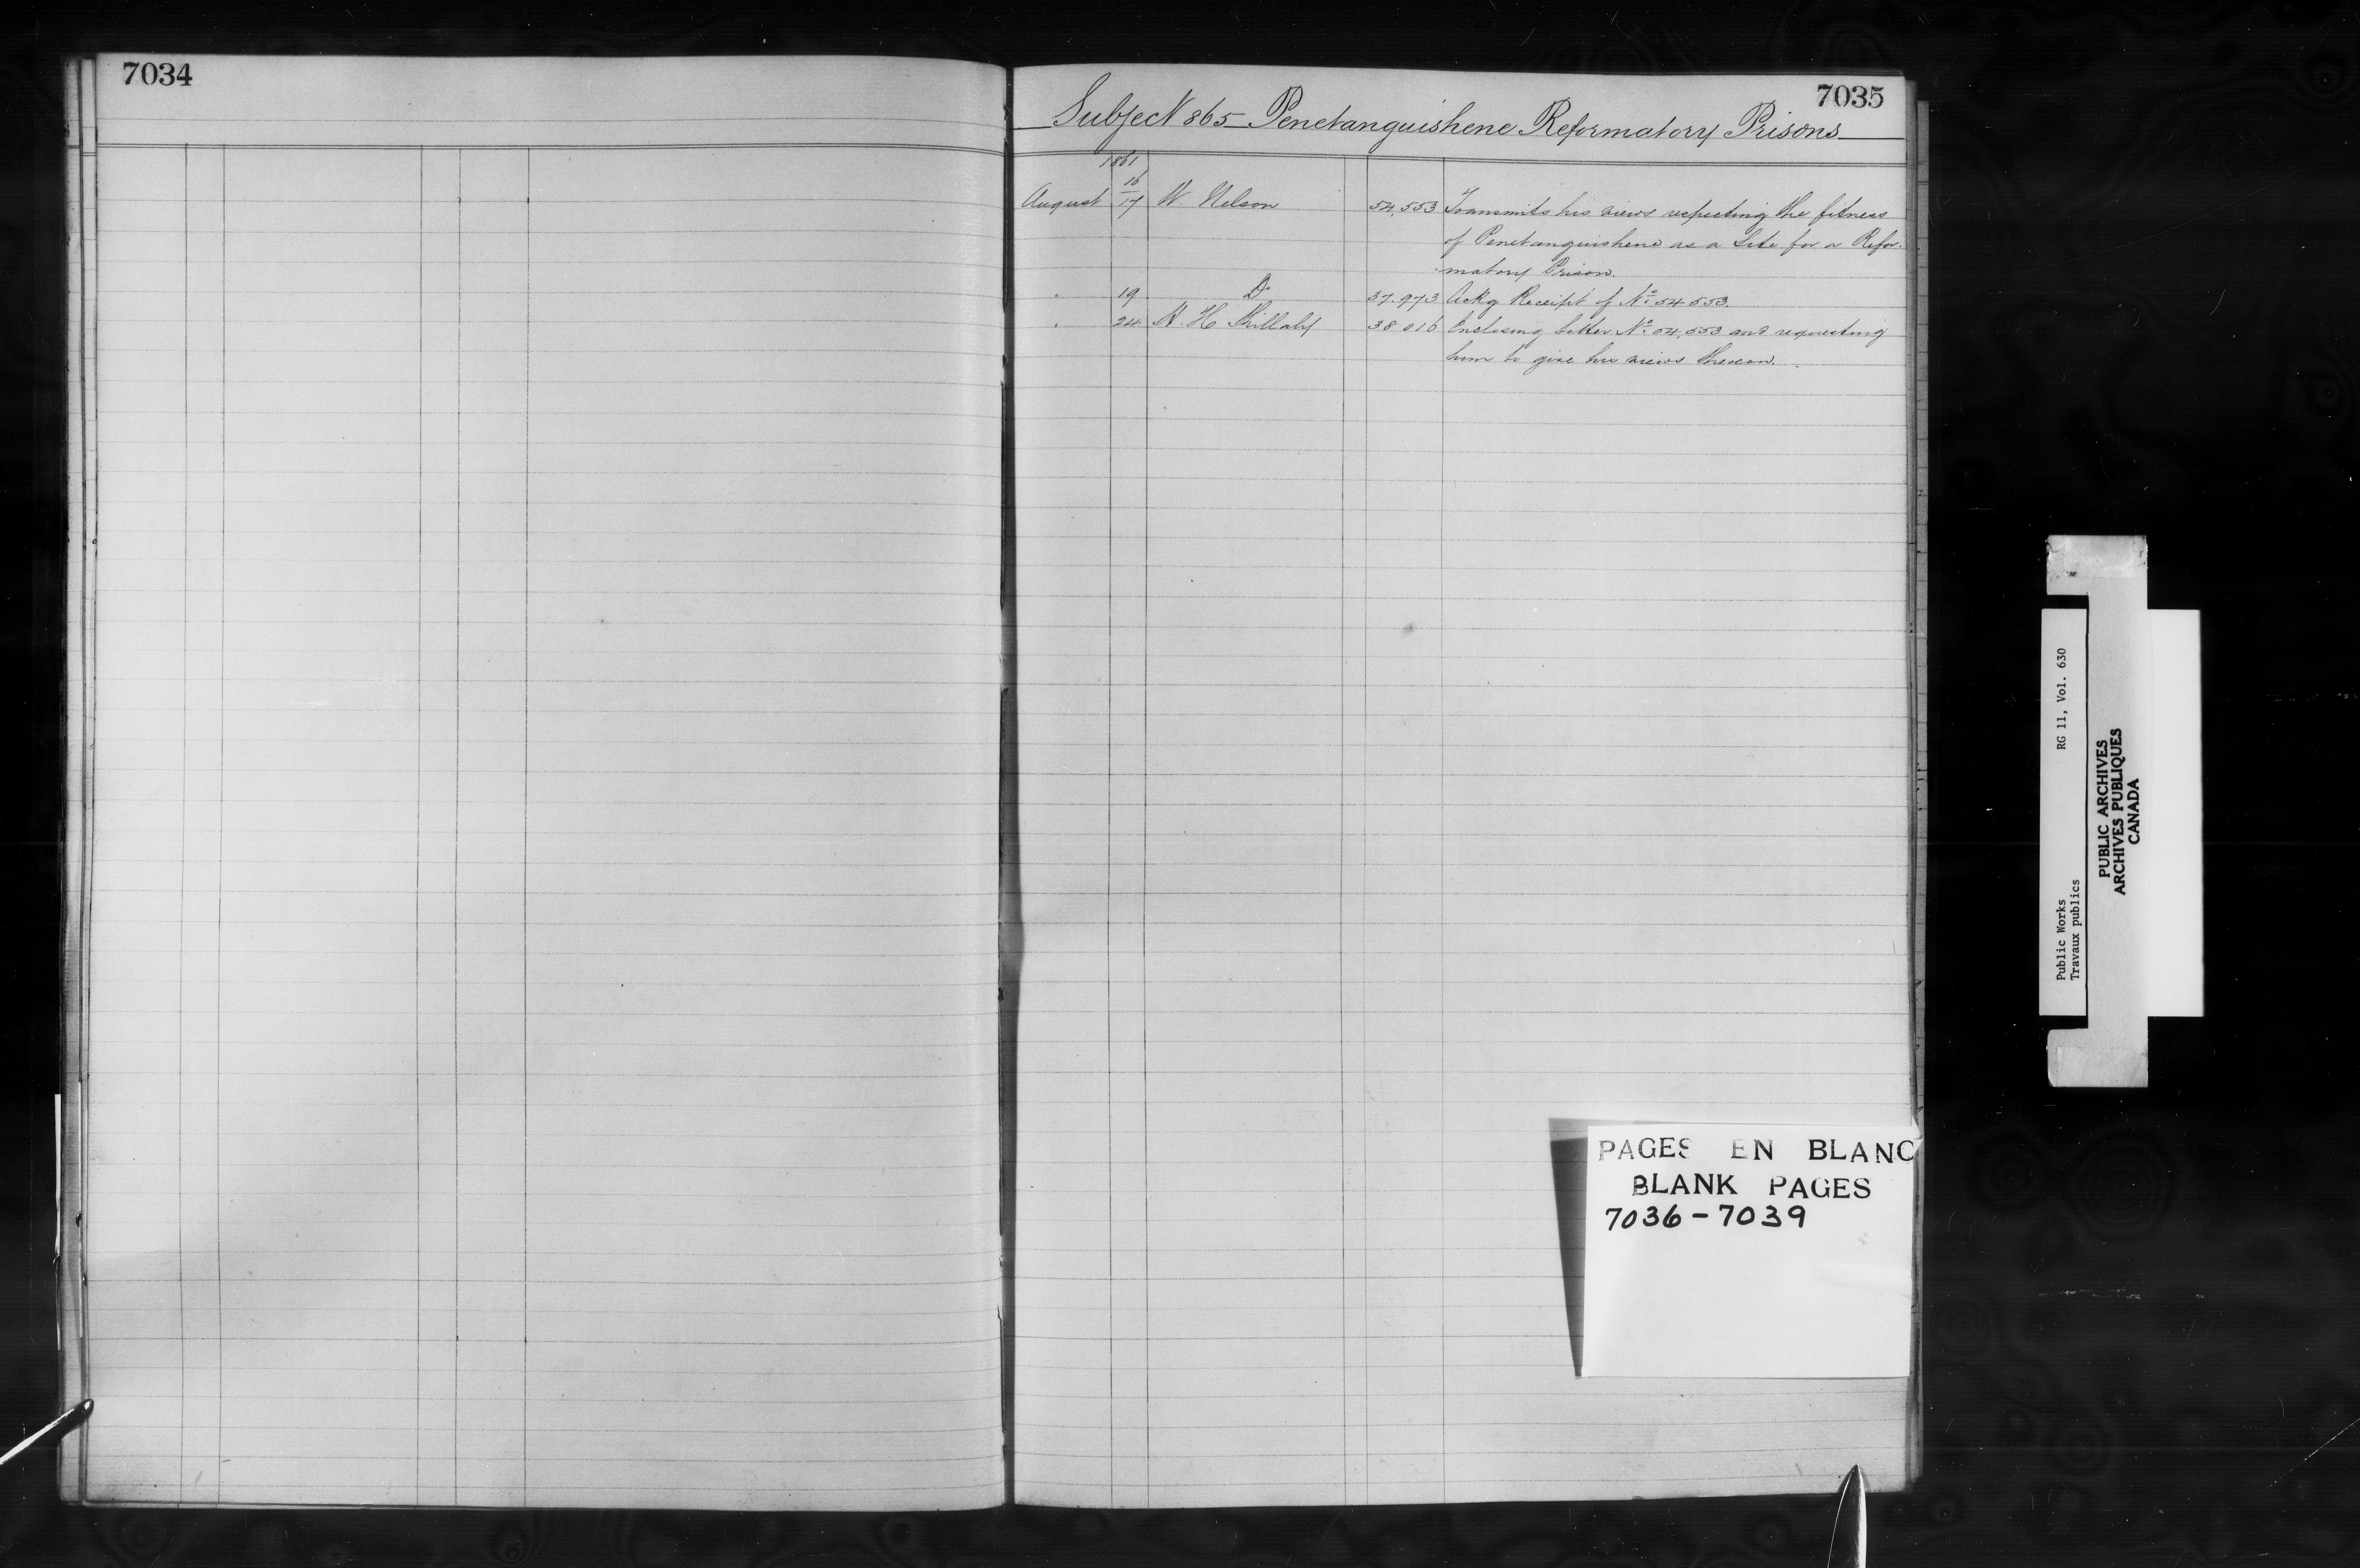 7034
7035
Subject 865 Penetanguishene Reformatory Prisons
1861
August 16/17 W. Nelson 54,553 Transmits his views respecting the fitness
of Penetanguishene as a Site for a Refor-
matory Prison.
" 19 Do 37.973 Ackg Receipt of No 54553.
" 24 H. H. Killaly 38.016 Enclosing letter No 54,553 and requesting
him to give his views thereon.
PAGES EN BLANC
BLANK PAGES
7036-7039
Public Works RG 11, Vol. 630
Travaux publics
PUBLIC ARCHIVES
ARCHIVES PUBLIQUES
CANADA